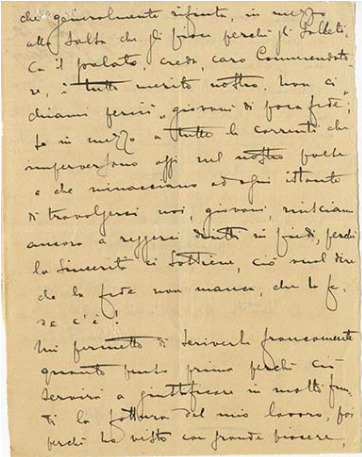 che generalmente rifiuta, in mezzo
alla salsa che gli piace perchè gli solleti-
ca il palato, credo, caro Commendato-
re, è tutto merito nostro, non ci
chiami perciò "giovani di poca fede";
se in mezzo a tutte le correnti che
imperversano oggi nel nostro
e che minacciano ad ogni istante
di travolgerci noi, giovani, riusciamo
ancora a reggerci diritti in piedi, perchè
la Sincerità ci sostiene, ciò vuol dire
che la fede non manca, che la fe-
de c'è!
Mi permetto di scriverle francamente
quanto penso prima perchè ciò
servirà a giustificare in molti pun-
ti la fattura del mio lavoro, poi
perchè ho visto con grande piacere,